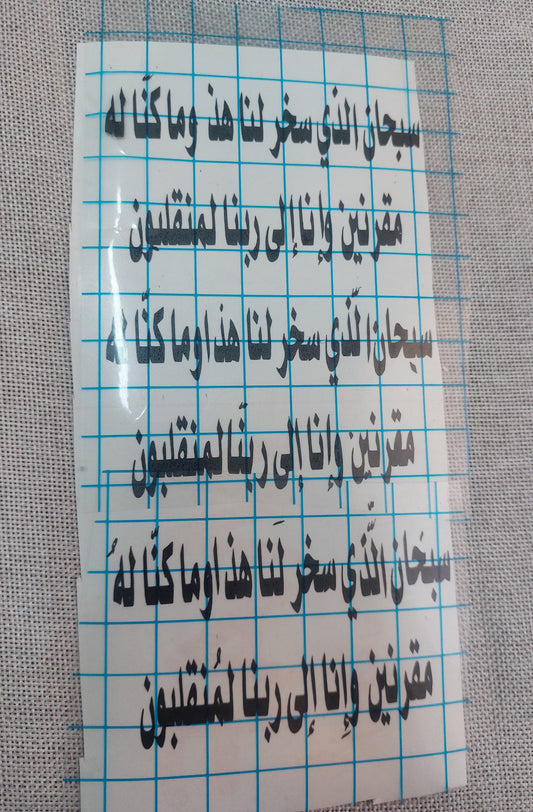 سبحان الذي سخر لنا هذ وما كنّا له
مقرنين وإنا إلى ربنا لمنقلبون
سبحان الّذي سخر لنا هذا وما كنّا له
مقرنين وإنا إلى ربنّا لمنقلبون
سبحَان الّذي سخر لَنا هذا وما كنّا لهُ
مقرنين وإنا إلى ربنا لمُنقلبون